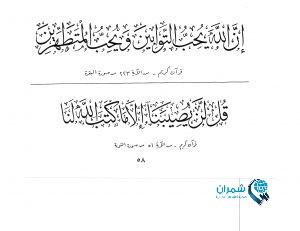 إِنَّ اللَّهَ يُحِبُّ التَّوَّابِينَ وَيُحِبُّ الْمُتَطَهِّرِينَ
قرآن كريم - من الآية ٢٢٢ من سورة البقرة
قُل لَّن يُصِيبَنَا إِلَّا مَا كَتَبَ اللَّهُ لَنَا
قرآن كريم - من الآية ٥١ من سورة التوبة
٥٨
شمران